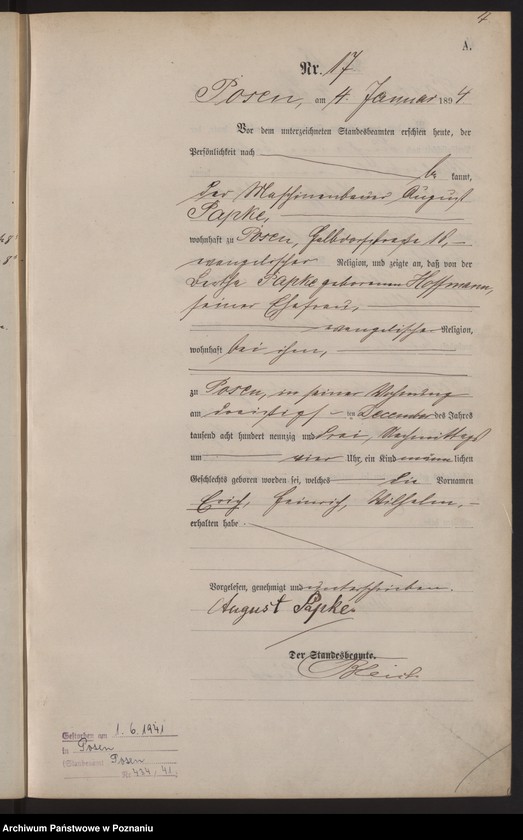 4
A.
Nr. 17
Posen, am 4. Januar 1894
Vor dem unterzeichneten Standesbeamten erschien heute, der
Persönlichkeit nach
be kannt,
der Maschinenbauer August
Papke,
wohnhaft zu Posen, Halbdorfstraße 10,
evangelischer Religion, und zeigte an, daß von der
Papke geborenen Hoffmann,
seiner Ehefrau,
evangelischer Religion,
wohnhaft bei ihm,
zu Posen, in seiner Wohnung
am dreißigsten Dezember des Jahres
tausend acht hundert neunzig und drei, Nachmittags
um vier Uhr, ein Kind männlichen
Geschlechts geboren worden sei, welches die Vornamen
Erich, Heinrich, Wilhelm,
erhalten habe.
Vorgelesen, genehmigt und unterschrieben.
August Papke
Der Standesbeamte.
Gestorben am 1.6.1941
in Posen
(Standesamt Posen
Nr. 434/41)
Archiwum Państwowe w Poznaniu